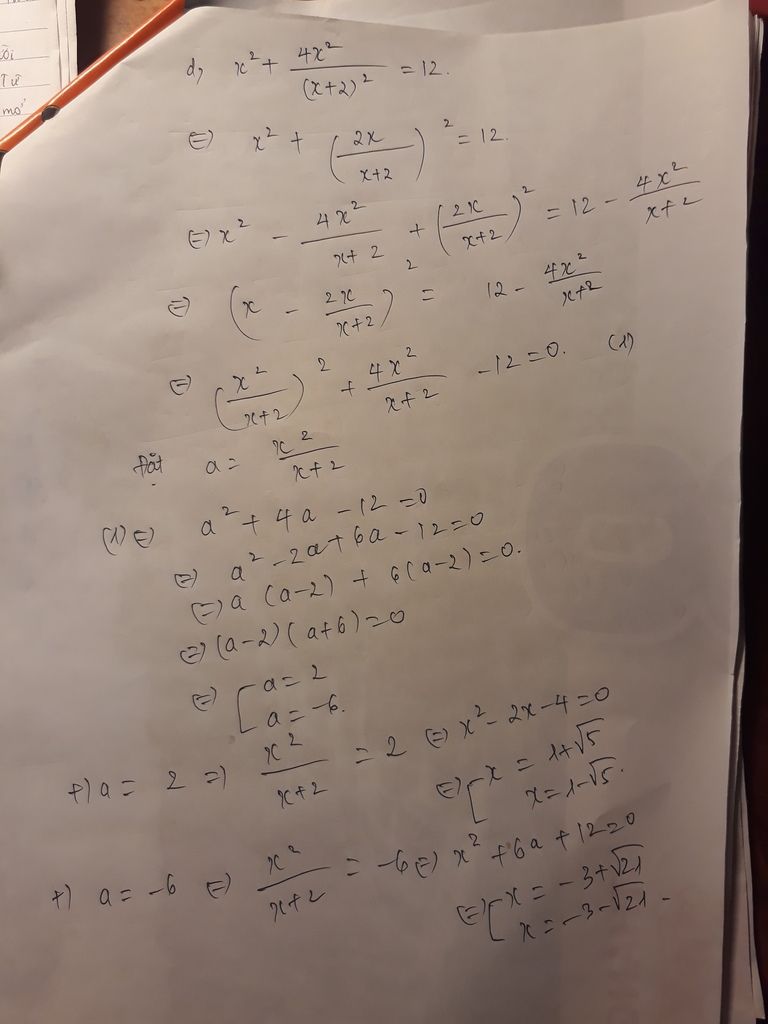 ồi
Từ
mở
d, x² + 4x²/(x+2)² = 12.
⇔ x² + (2x/(x+2))² = 12.
⇔ x² - 4x²/(x+2) + (2x/(x+2))² = 12 - 4x²/(x+2)
⇔ (x - 2x/(x+2))² = 12 - 4x²/(x+2)
⇔ (x²/(x+2))² + 4x²/(x+2) - 12 = 0. (1)
Đặt a = x²/(x+2)
(1) ⇔ a² + 4a - 12 = 0
⇔ a² - 2a + 6a - 12 = 0
⇔ a (a-2) + 6(a-2) = 0.
⇔ (a-2)(a+6) = 0
⇔ [ a = 2
a = -6.
+) a = 2 ⇒ x²/(x+2) = 2 ⇔ x² - 2x - 4 = 0
⇔ [ x = 1+√5
x = 1-√5.
+) a = -6 ⇔ x²/(x+2) = -6 ⇔ x² + 6a + 12 = 0
⇔ [ x = -3+√21
x = -3-√21.